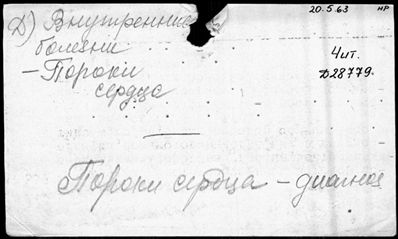 20.5.63 нр
Д) Внутренние
болезни
Чит.
Д28779.
- Пороки
сердца
Пороки сердца - диагноз